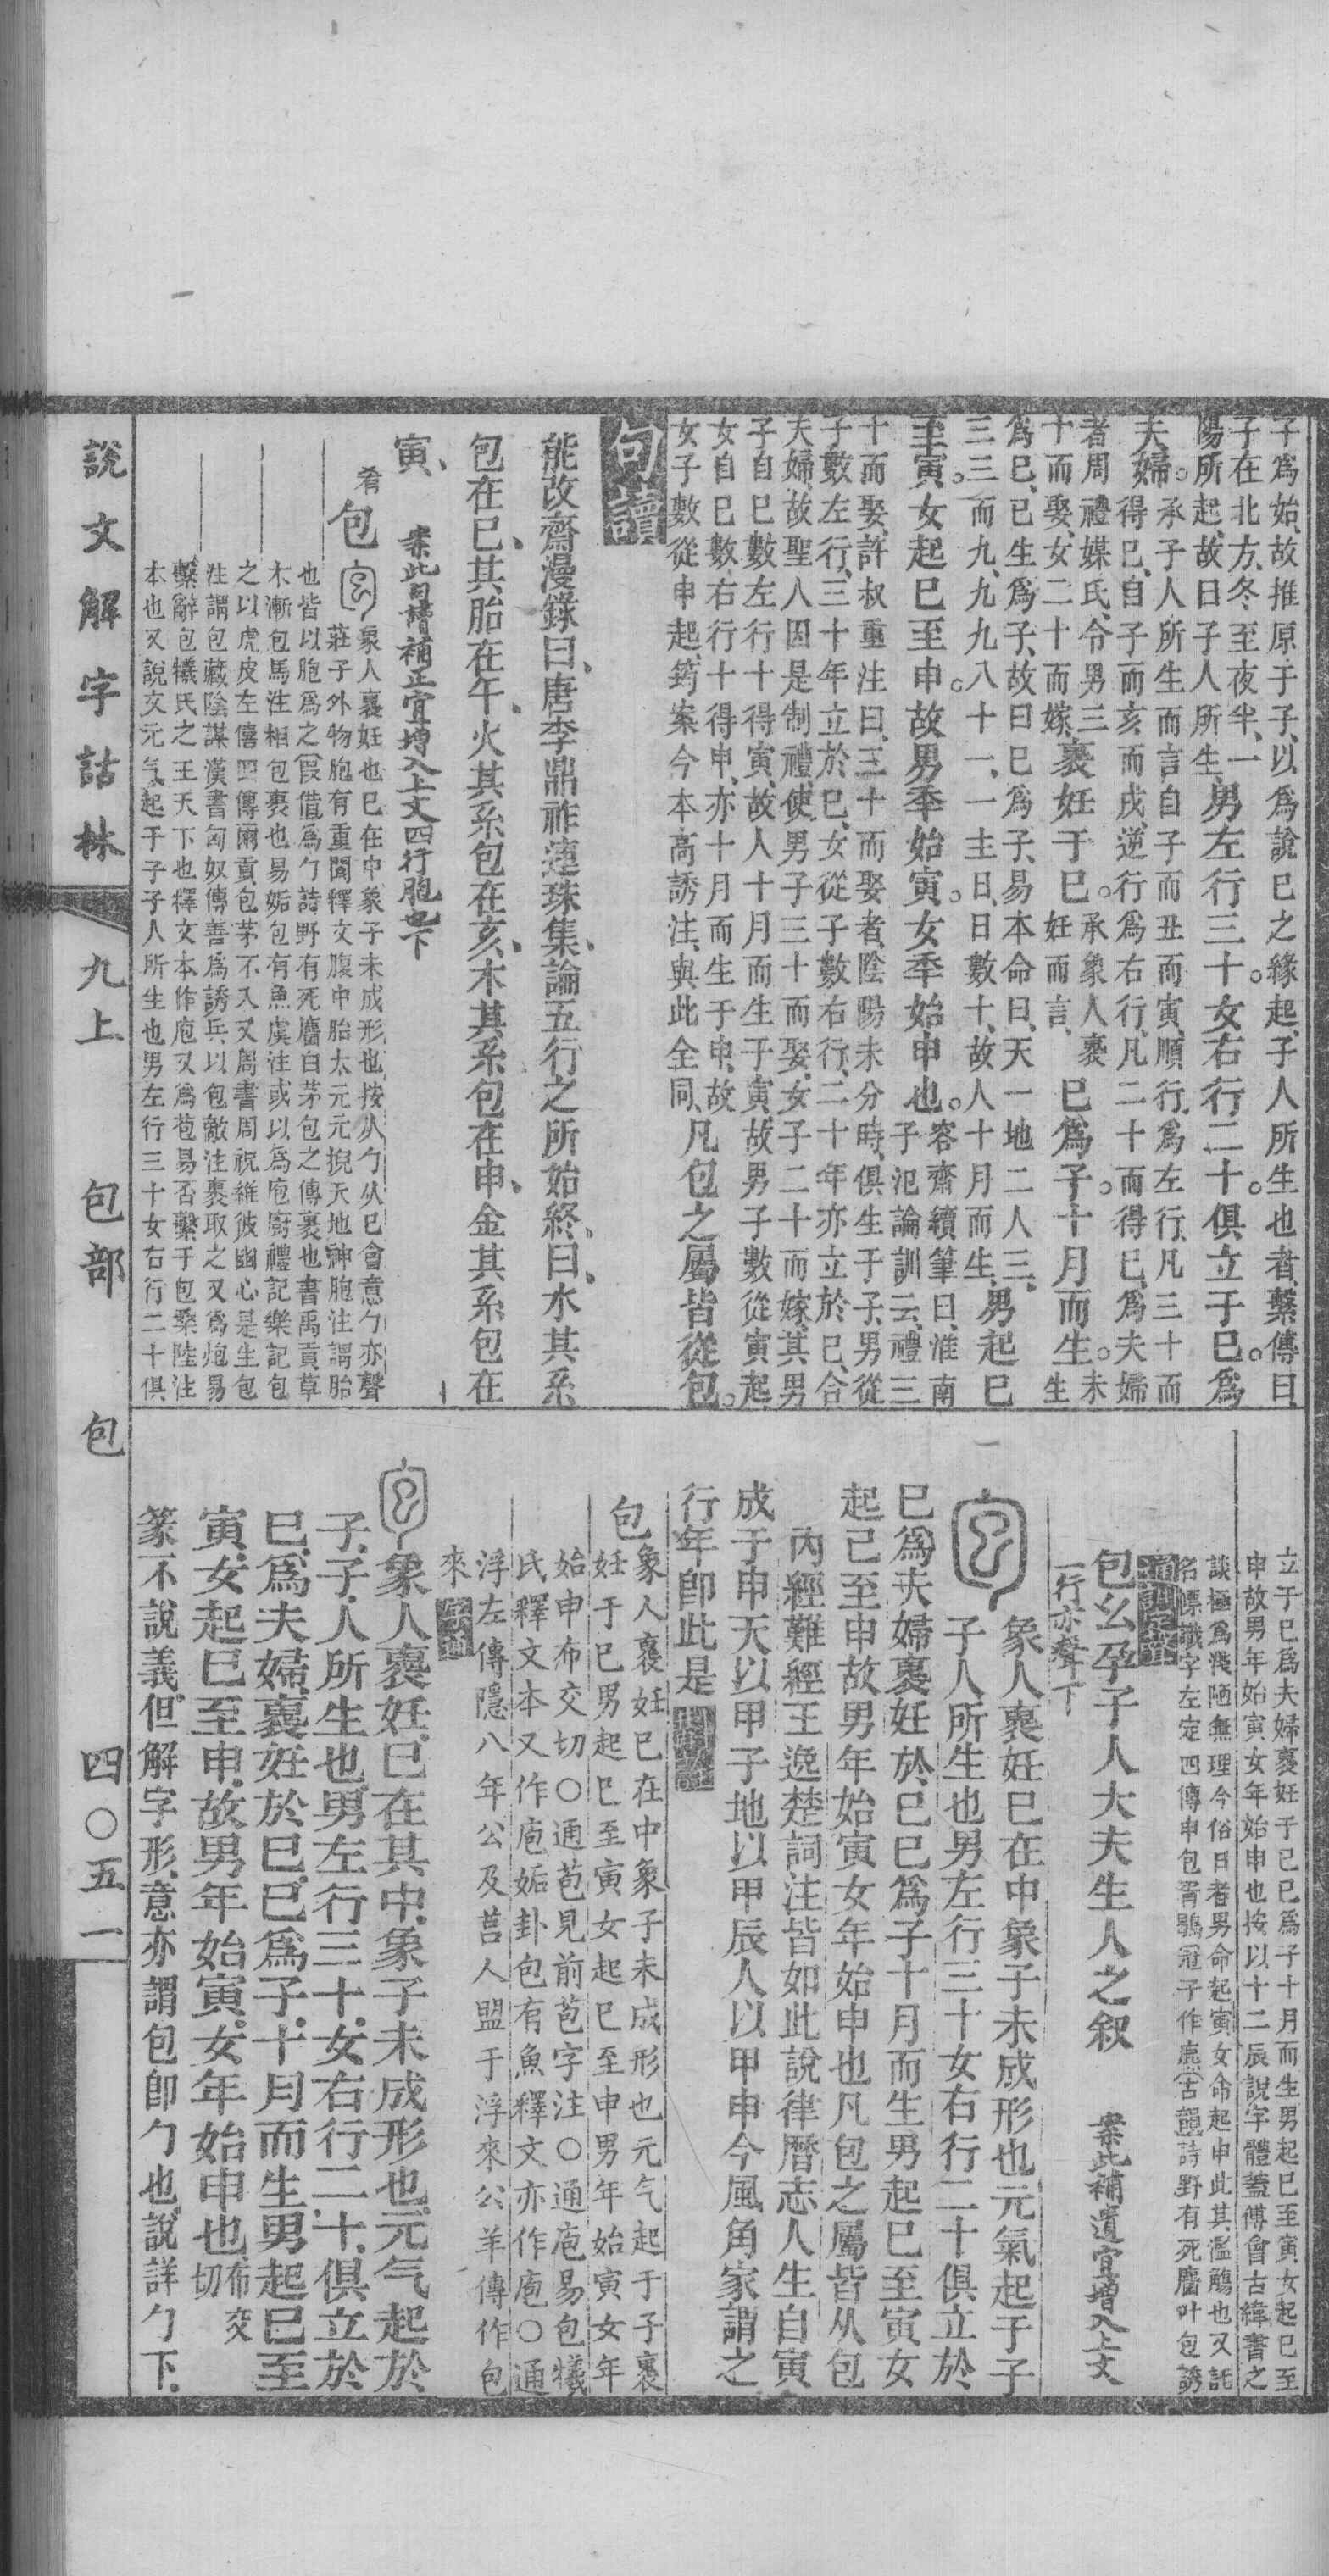 子爲始、故推原于子、以爲說巳之緣起、子人所生也者、繫傳曰、
子在北方、冬至夜半、一
陽所起、故曰子人所生、男左行三十。女右行二十。俱立于巳。爲
夫婦。
承子人所生而言自子而丑而寅、順行、爲左行、凡三十而
得巳、自子而亥而戌逆行、爲右行、凡二十而得巳、爲夫婦
者周禮媒氏、令男三
十而娶、女二十而嫁、裹妊于巳。
承象人裹
妊而言、
巳爲子。十月而生。
未
生
爲巳、已生爲子、故曰巳爲子、易本命曰、天一地二人三、
三三而九、九九八十一、一主日、日數十、故人十月而生、男起巳
至寅。女起巳至申。故男秊始寅。女秊始申也。
容齋續筆曰、淮南
子氾論訓云、禮三
十而娶、許叔重注曰、三十而娶者、陰陽未分時、俱生于子、男從
子數左行、三十年立於巳、女從子數右行、二十年亦立於巳、合
夫婦、故聖人因是制禮、使男子三十而娶、女子二十而嫁、其男
子自巳數左行十得寅、故人十月而生于寅、故男子數從寅起、
女自巳數、右行十得申、亦十月而生于申、故
女子數從申起、筠案今本高誘注、與此全同、凡包之屬皆從包。
句讀
能改齋漫錄曰、唐李鼎祚連珠集、論五行之所始終、曰、水其系
包在巳、其胎在午、火其系包在亥、木其系包在申、金其系包在
寅、
案此句讀補正宜增入上文四行胞也下
肴
包
象人裹妊也巳在中象子未成形也、按从勹从巳會意勹亦聲
莊子外物胞有重閬釋文腹中胎太元元掜天地神胞注謂胎
也皆以胞爲之、叚借爲勹詩野有死麕白茅包之傳裹也書禹貢草
木漸包馬注相包裹也易姤包有魚虞注或以爲庖廚禮記樂記包
之以虎皮左僖四傳爾貢包茅不入又周書周祝維彼幽心是生包
注謂包藏陰謀漢書匈奴傳善爲誘兵以包敵注裹取之又爲炮易
繫辭包犧氏之王天下也釋文本作庖又爲苞易否繫于包桑陸注
本也又說文元气起于子子人所生也男左行三十女右行二十俱
說文解字詁林
九上
包部
包
四〇五一
立于巳爲夫婦裹妊于巳巳爲子十月而生男起巳至寅女起巳至
申故男年始寅女年始申也按以十二辰說字體蓋傅會古緯書之
談極爲淺陋無理今俗日者男命起寅女命起申此其濫觴也又託
名幖識字左定四傳申包胥鶡冠子作麃古韻詩野有死麕叶包誘
通訓定聲
包幺孕子人大夫生人之叙
案此補遺宜增入上文
一行亦聲下
象人裹妊巳在中象子未成形也元氣起于子
子人所生也男左行三十女右行二十俱立於
巳爲夫婦裹妊於巳巳爲子十月而生男起巳至寅女
起己至申故男年始寅女年始申也凡包之屬皆从包
內經難經王逸楚詞注皆如此說律曆志人生自寅
成于申天以甲子地以甲辰人以甲申今風角家謂之
行年卽此是
包
象人裹妊巳在中象子未成形也元气起于子裹
妊于巳男起巳至寅女起巳至申男年始寅女年
始申布交切〇通苞見前苞字注〇通庖易包犧
氏釋文本又作庖姤卦包有魚釋文亦作庖〇通
浮左傳隱八年公及莒人盟于浮來公羊傳作包
來
象人裹妊、巳在其中、象子未成形也、元气起於
子、子、人所生也、男左行三十、女右行二十、俱立於
巳、爲夫婦、裹妊於巳、巳爲子、十月而生、男起巳至
寅、女起巳至申、故男年始寅、女年始申也、
布交
切
篆不說義、但解字形、意亦謂包卽勹也、說詳勹下、